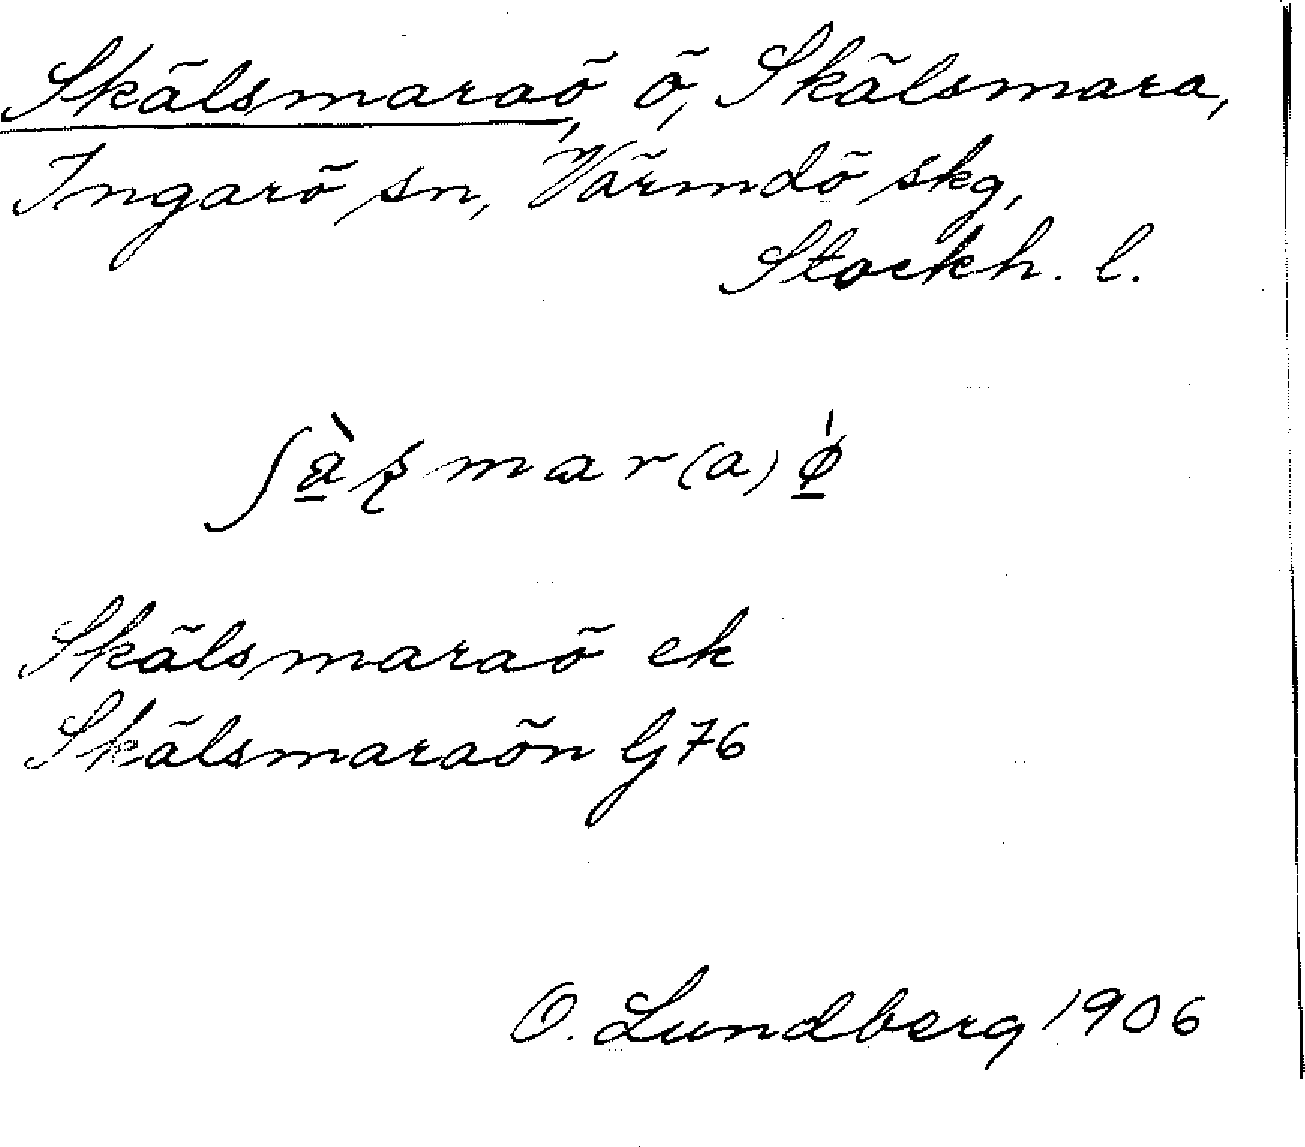 Skälsmaraö, ö, Skälsmara,
Ingarö sn, Värmdö skg,
Stockh. l.
Skälsmaraö ek
Skälsmaraön G 76
O. Lundberg 1906